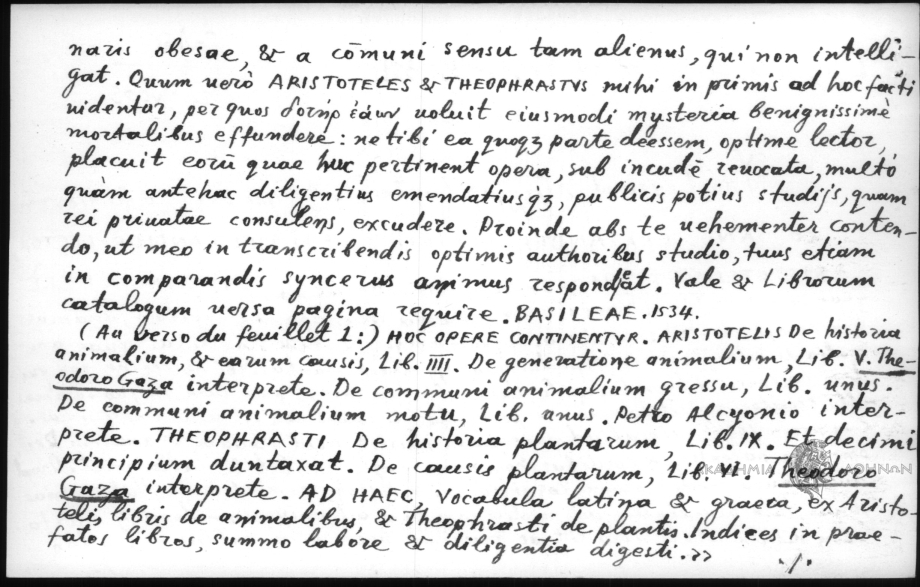 naris obesae, & a cōmuni sensu tam alienus, qui non intelli-
gat. Quum uerò ARISTOTELES & THEOPHRASTVS mihi in primis ad hoc facti
uidentur, per quos δοτὴρ ἐάων uoluit eiusmodi mysteria benignissimè
mortalibus effundere: ne tibi ea quoqꝫ parte deessem, optime lector,
placuit eorū quae huc pertinent opera, sub incudē reuocata, multò
quàm antehac diligentius emendatiusqꝫ, publicis potius studijs, quam
rei priuatae consulens, excudere. Proinde abs te uehementer conten-
do, ut meo in transcribendis optimis authoribus studio, tuus etiam
in comparandis syncerus animus respondeat. Vale & Librorum
catalogum uersa pagina require. BASILEAE. 1534.
(Au verso du feuillet 1:) HOC OPERE CONTINENTVR. ARISTOTELIS De historia
animalium, & earum causis, Lib. IIII. De generatione animalium, Lib. V. The-
odoro Gaza interprete. De communi animalium gressu, Lib. unus.
De communi animalium motu, Lib. unus. Petro Alcyonio inter-
prete. THEOPHRASTI De historia plantarum, Lib. IX. Et decimi
principium duntaxat. De causis plantarum, Lib. VI. Theodoro
Gaza interprete. AD HAEC, Vocabula latina & graeca, ex Aristo-
telis libris de animalibus, & Theophrasti de plantis. Indices in prae-
fatos libros, summo labore & diligentia digesti.>>
./.